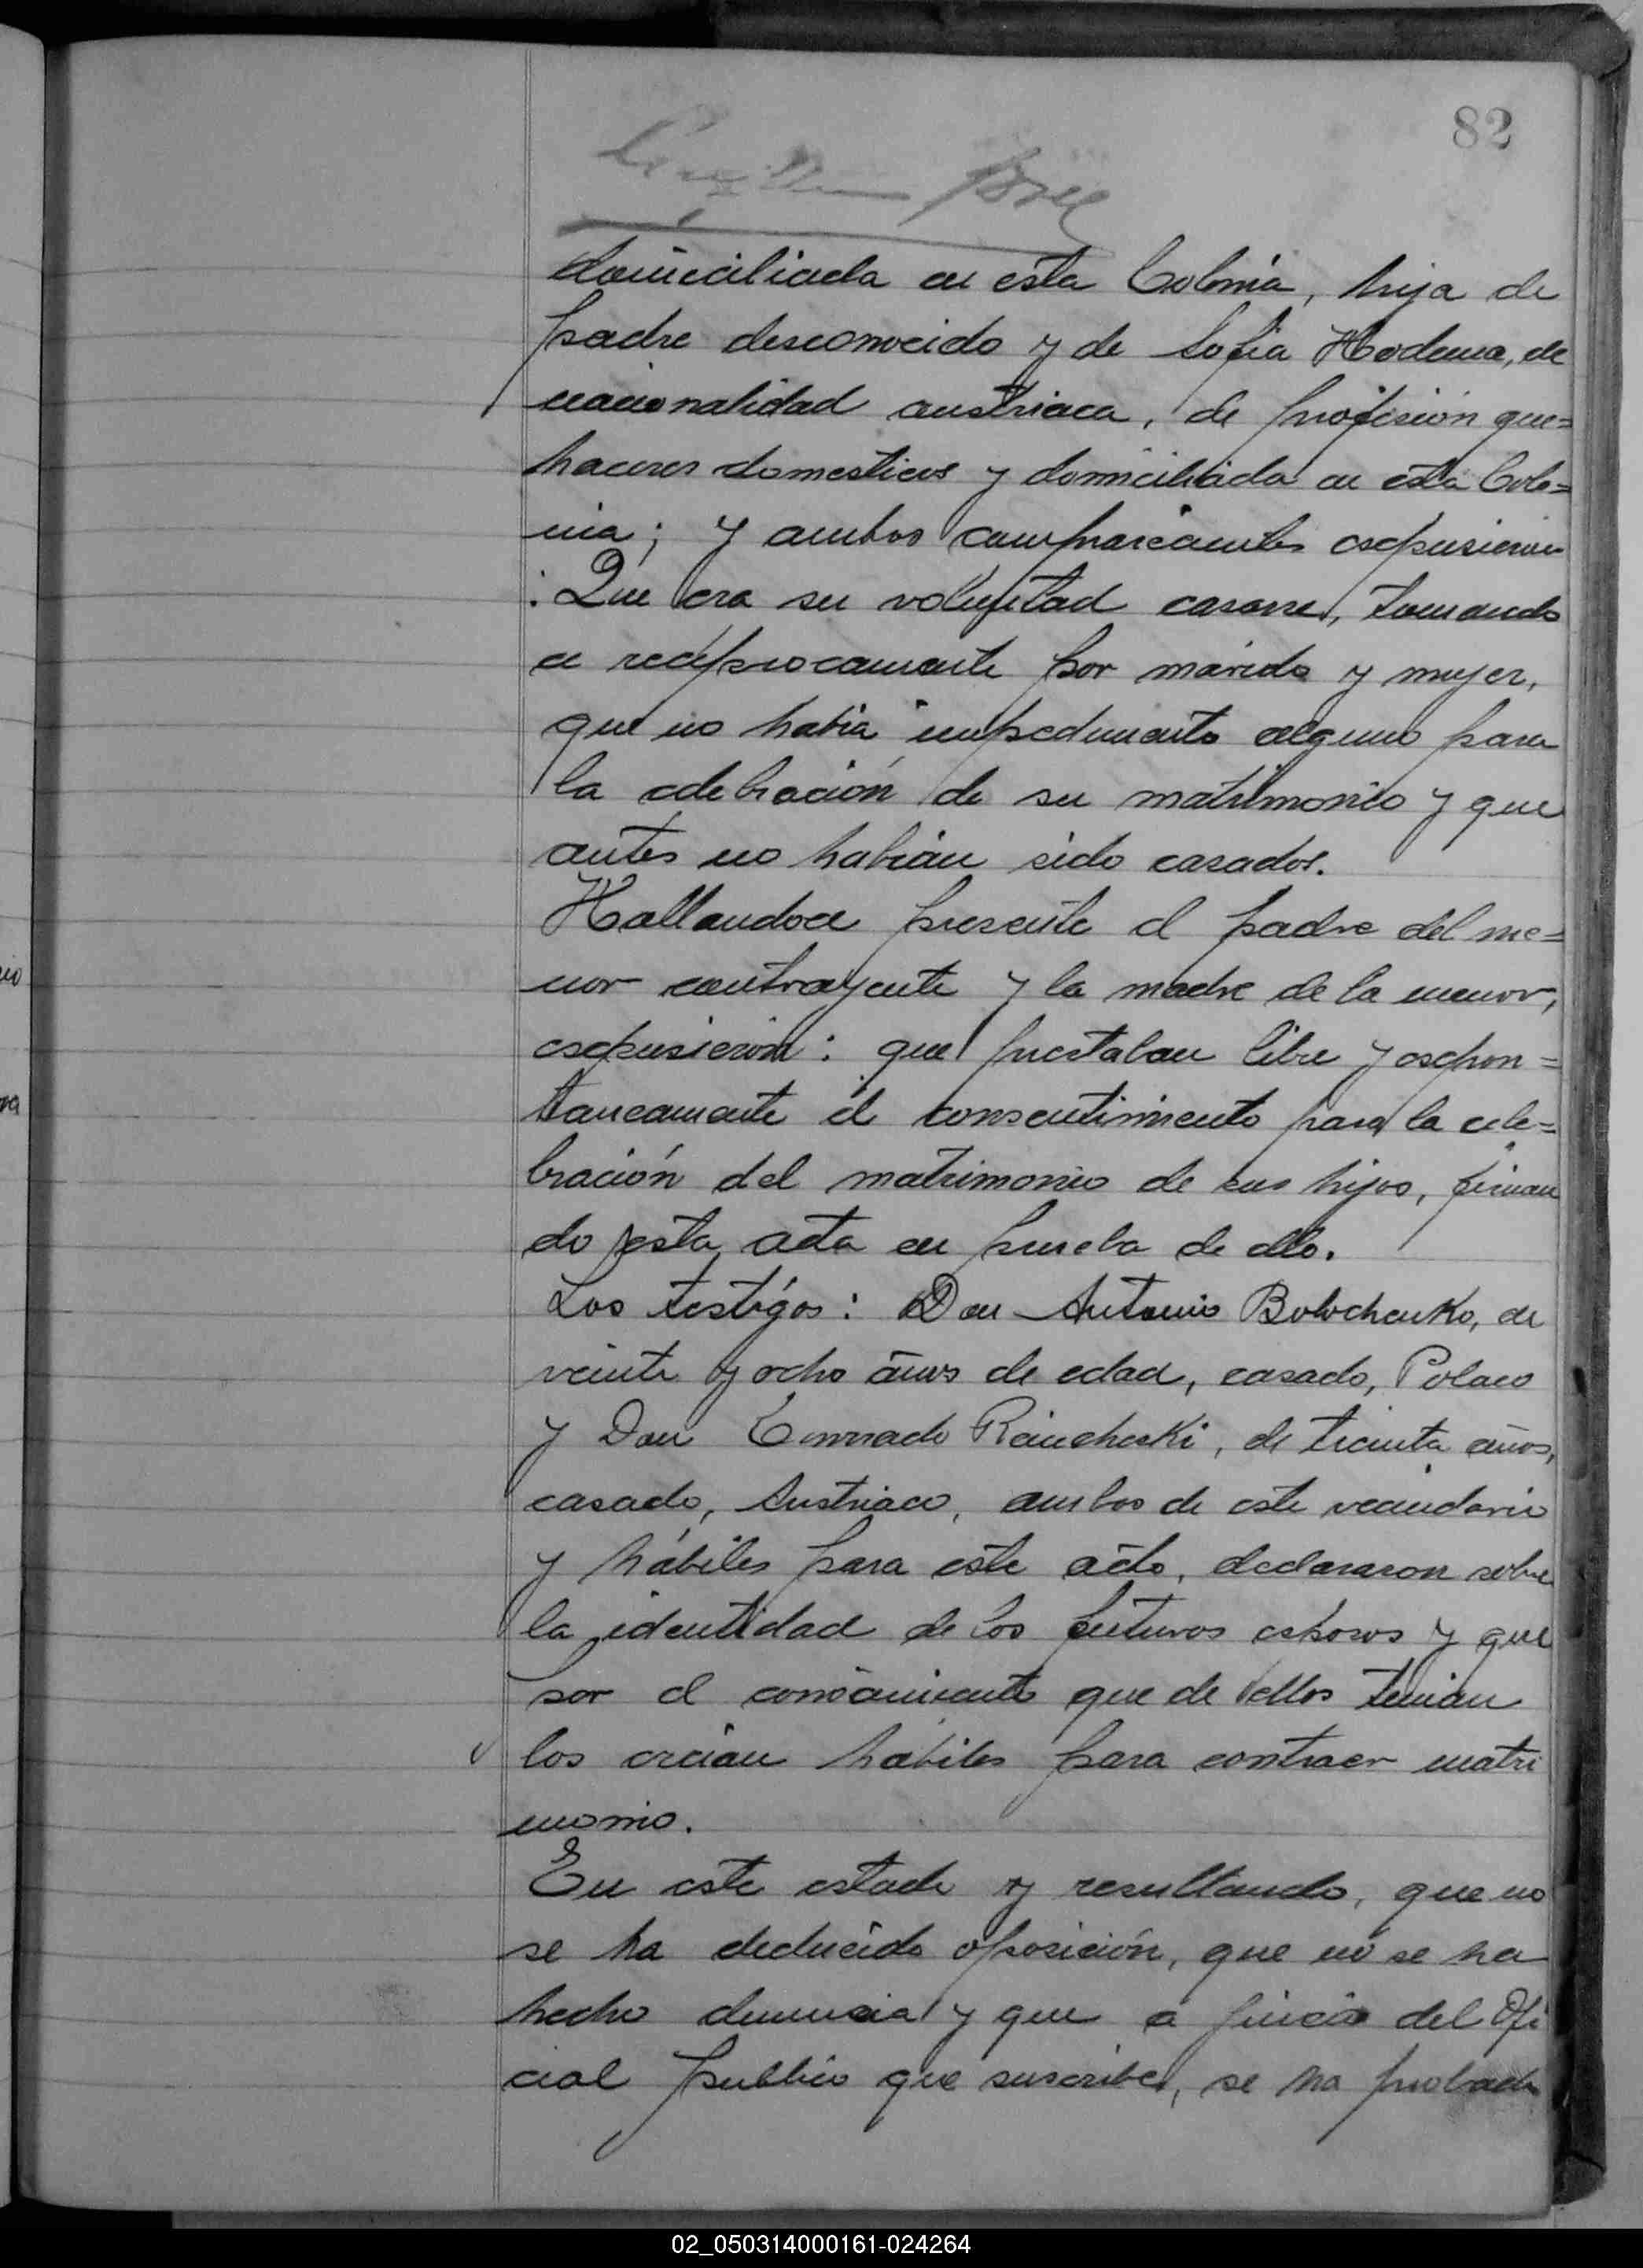 82
domiciliada en esta Colonia, hija de
padre desconocido y de Sofia Hodema, de
nacionalidad austriaca, de profesión que=
haceres domesticos y domiciliada en esta Colo=
nia; y ambos comparecientes espusieron
: Que era su voluntad casarse, tomando
se reciprocamente por marido y mujer,
que no habia impedimento alguno para
la celebración de su matrimonio y que
antes no habian sido casados.
Hallandose presente el padre del me=
nor contrayente y la madre de la menor,
espusieron: que prestaban libre y espon=
taneamente el consentimiento para la cele=
bración del matrimonio de sus hijos, firman
do esta acta en prueba de ello.
Los testigos: Don Antonio Bolochenko, de
veinte y ocho años de edad, casado, Polaco
y Don Conrado, de treinta años,
casado, Austriaco, ambos de este vecindario
y hábiles para este acto, declararon sobre
la identidad de los futuros esposos y que
por el conocimiento que de ellos tenian
los creian habiles para contraer matri
monio.
En este estado y resultando, que no
se ha deducido oposición, que no se ha
hecho denuncia y que a juicio del Ofi
cial publico que suscribe, se ha probado
02_050314000161-024264